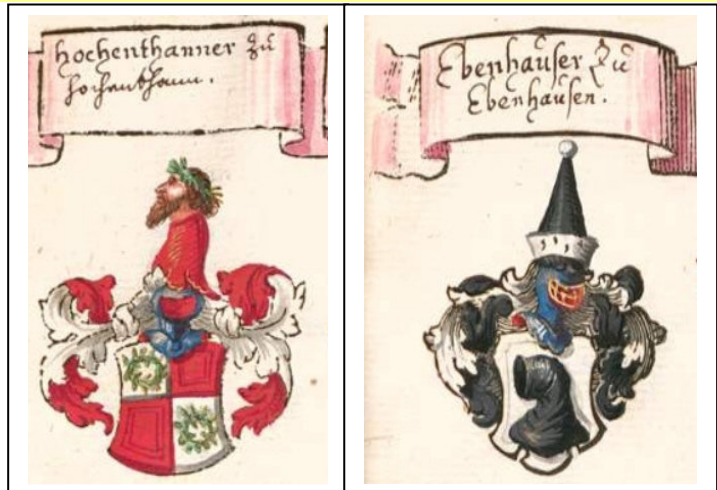 Hochenthanner zu
Hochenthann.
Ebenhauser Zu
Ebenhausen.